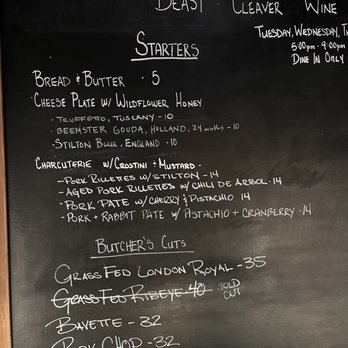 BEAST · CLEAVER WINE
TUESDAY, WEDNESDAY,
5:00pm - 9:00pm
DINE IN ONLY
STARTERS
BREAD & BUTTER · 5
CHEESE PLATE W/ WILDFLOWER HONEY
· TEUFFETTO, TUSCANY - 10
· BEEMSTER GOUDA, HOLLAND, 24 months - 10
· STILTON BLUE, ENGLAND · 10
CHARCUTERIE W/ CROSTINI + MUSTARD ·
- PORK RILLETTES W/ STILTON - 14
- AGED PORK RILLETTES W/ CHILI DE ARBOL · 14
- PORK PATE W/ CHERRY & PISTACHIO 14
- PORK + RABBIT PATE W/ PISTACHIO + CRANBERRY · 14
BUTCHER'S CUTS
GRASS FED LONDON ROYAL - 35
GRASS FED RIBEYE - 40 SOLD OUT
BAVETTE - 32
PORK CHOP - 32